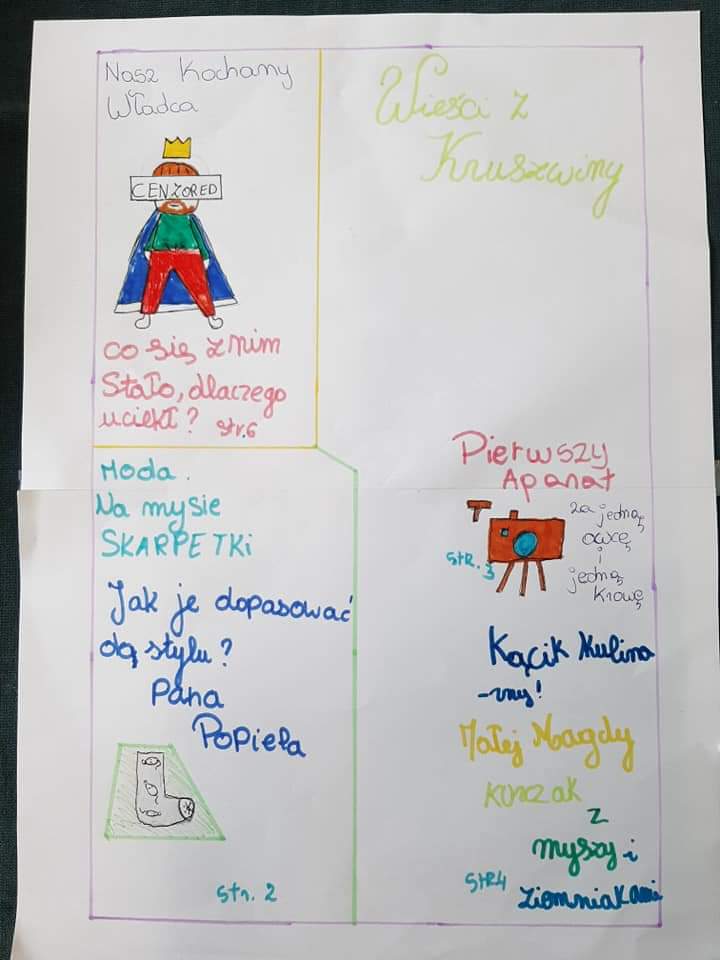 Nasz Kochany
Władca
CENZORED
co się z nim
Stało, dlaczego
uciekł? str.6
Wieści z
Kruszwiny
Moda.
Na mysie
SKARPETKi
Jak je dopasować
dą stylu?
Pana
Popiela
str. 2
Pierwszy
Aparat
za jedną
owcę
i
jedną
krowę
stR. 3
Kącik Kulina
-rny!
Małej Magdy
kurczak
z
myszy i
ziomniakami
stR4